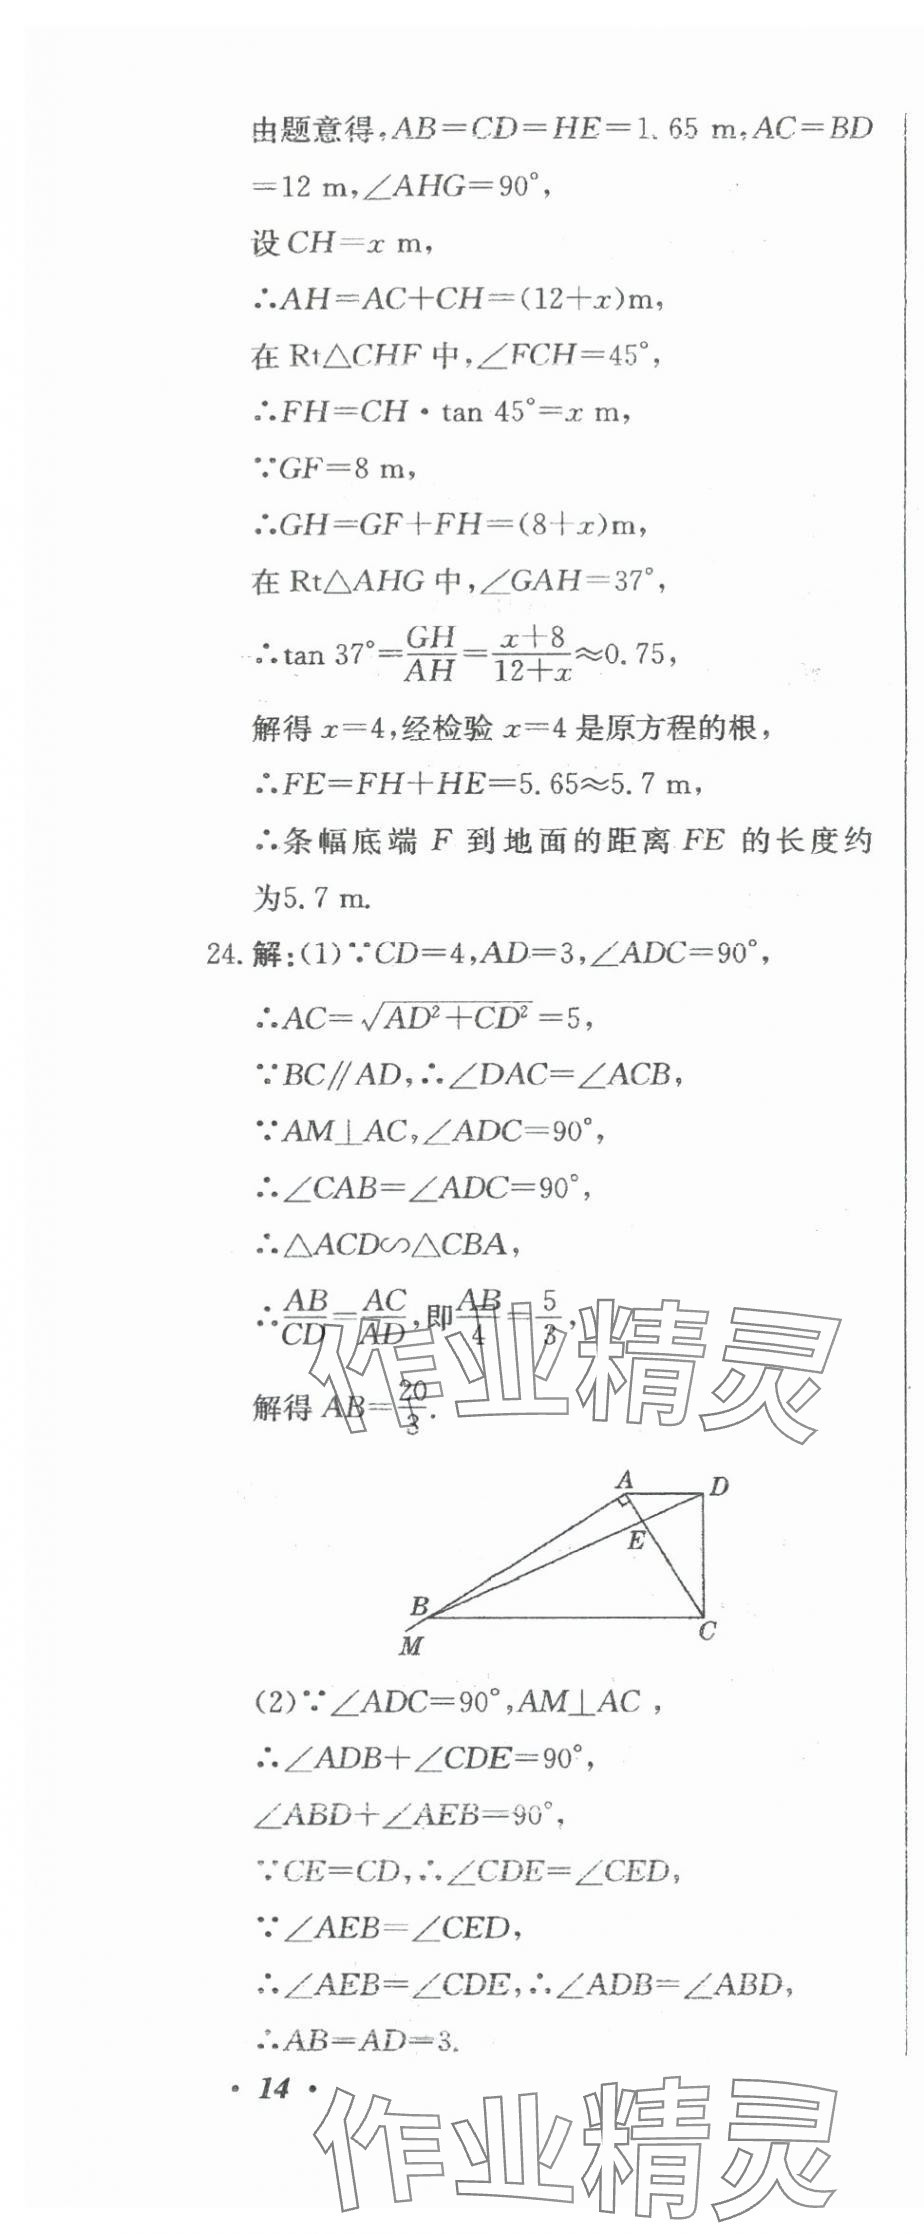 由题意得,AB=CD=HE=1.65 m,AC=BD
=12 m,∠AHG=90°,
设CH=x m,
∴AH=AC+CH=(12+x)m,
在 Rt△CHF 中,∠FCH=45°,
∴FH=CH·tan 45°=x m,
∵GF=8 m,
∴GH=GF+FH=(8+x)m,
在 Rt△AHG 中,∠GAH=37°,
∴tan 37°=GH/AH=(x+8)/(12+x)≈0.75,
解得 x=4,经检验 x=4 是原方程的根,
∴FE=FH+HE=5.65≈5.7 m,
∴条幅底端 F 到地面的距离 FE 的长度约
为5.7 m.
24. 解:(1)∵CD=4,AD=3,∠ADC=90°,
∴AC=√(AD²+CD²)=5,
∵BC∥AD,∴∠DAC=∠ACB,
∵AM⊥AC,∠ADC=90°,
∴∠CAB=∠ADC=90°,
∴△ACD∽△CBA,
∴AB/CD=AC/AD,即AB/4=5/3,
解得 AB=20/3.
作业精灵
A D
E
B
C
M
(2)∵∠ADC=90°,AM⊥AC,
∴∠ADB+∠CDE=90°,
∠ABD+∠AEB=90°,
∵CE=CD,∴∠CDE=∠CED,
∵∠AEB=∠CED,
∴∠AEB=∠CDE,∴∠ADB=∠ABD,
∴AB=AD=3.
·14·
作业精灵